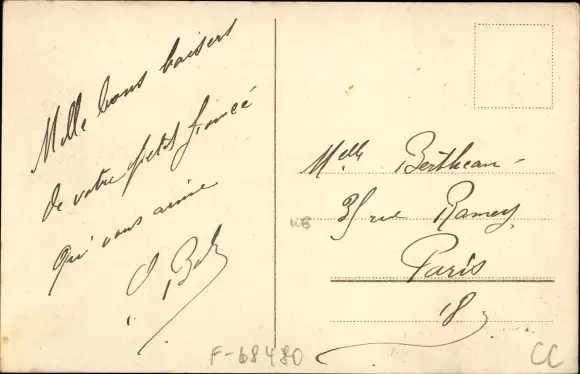 Mille bons baisers
de votre petit fiancé
qui vous aime
Melle Bertheau
35 rue Ramey
Paris
18
NB
F-68480
CC